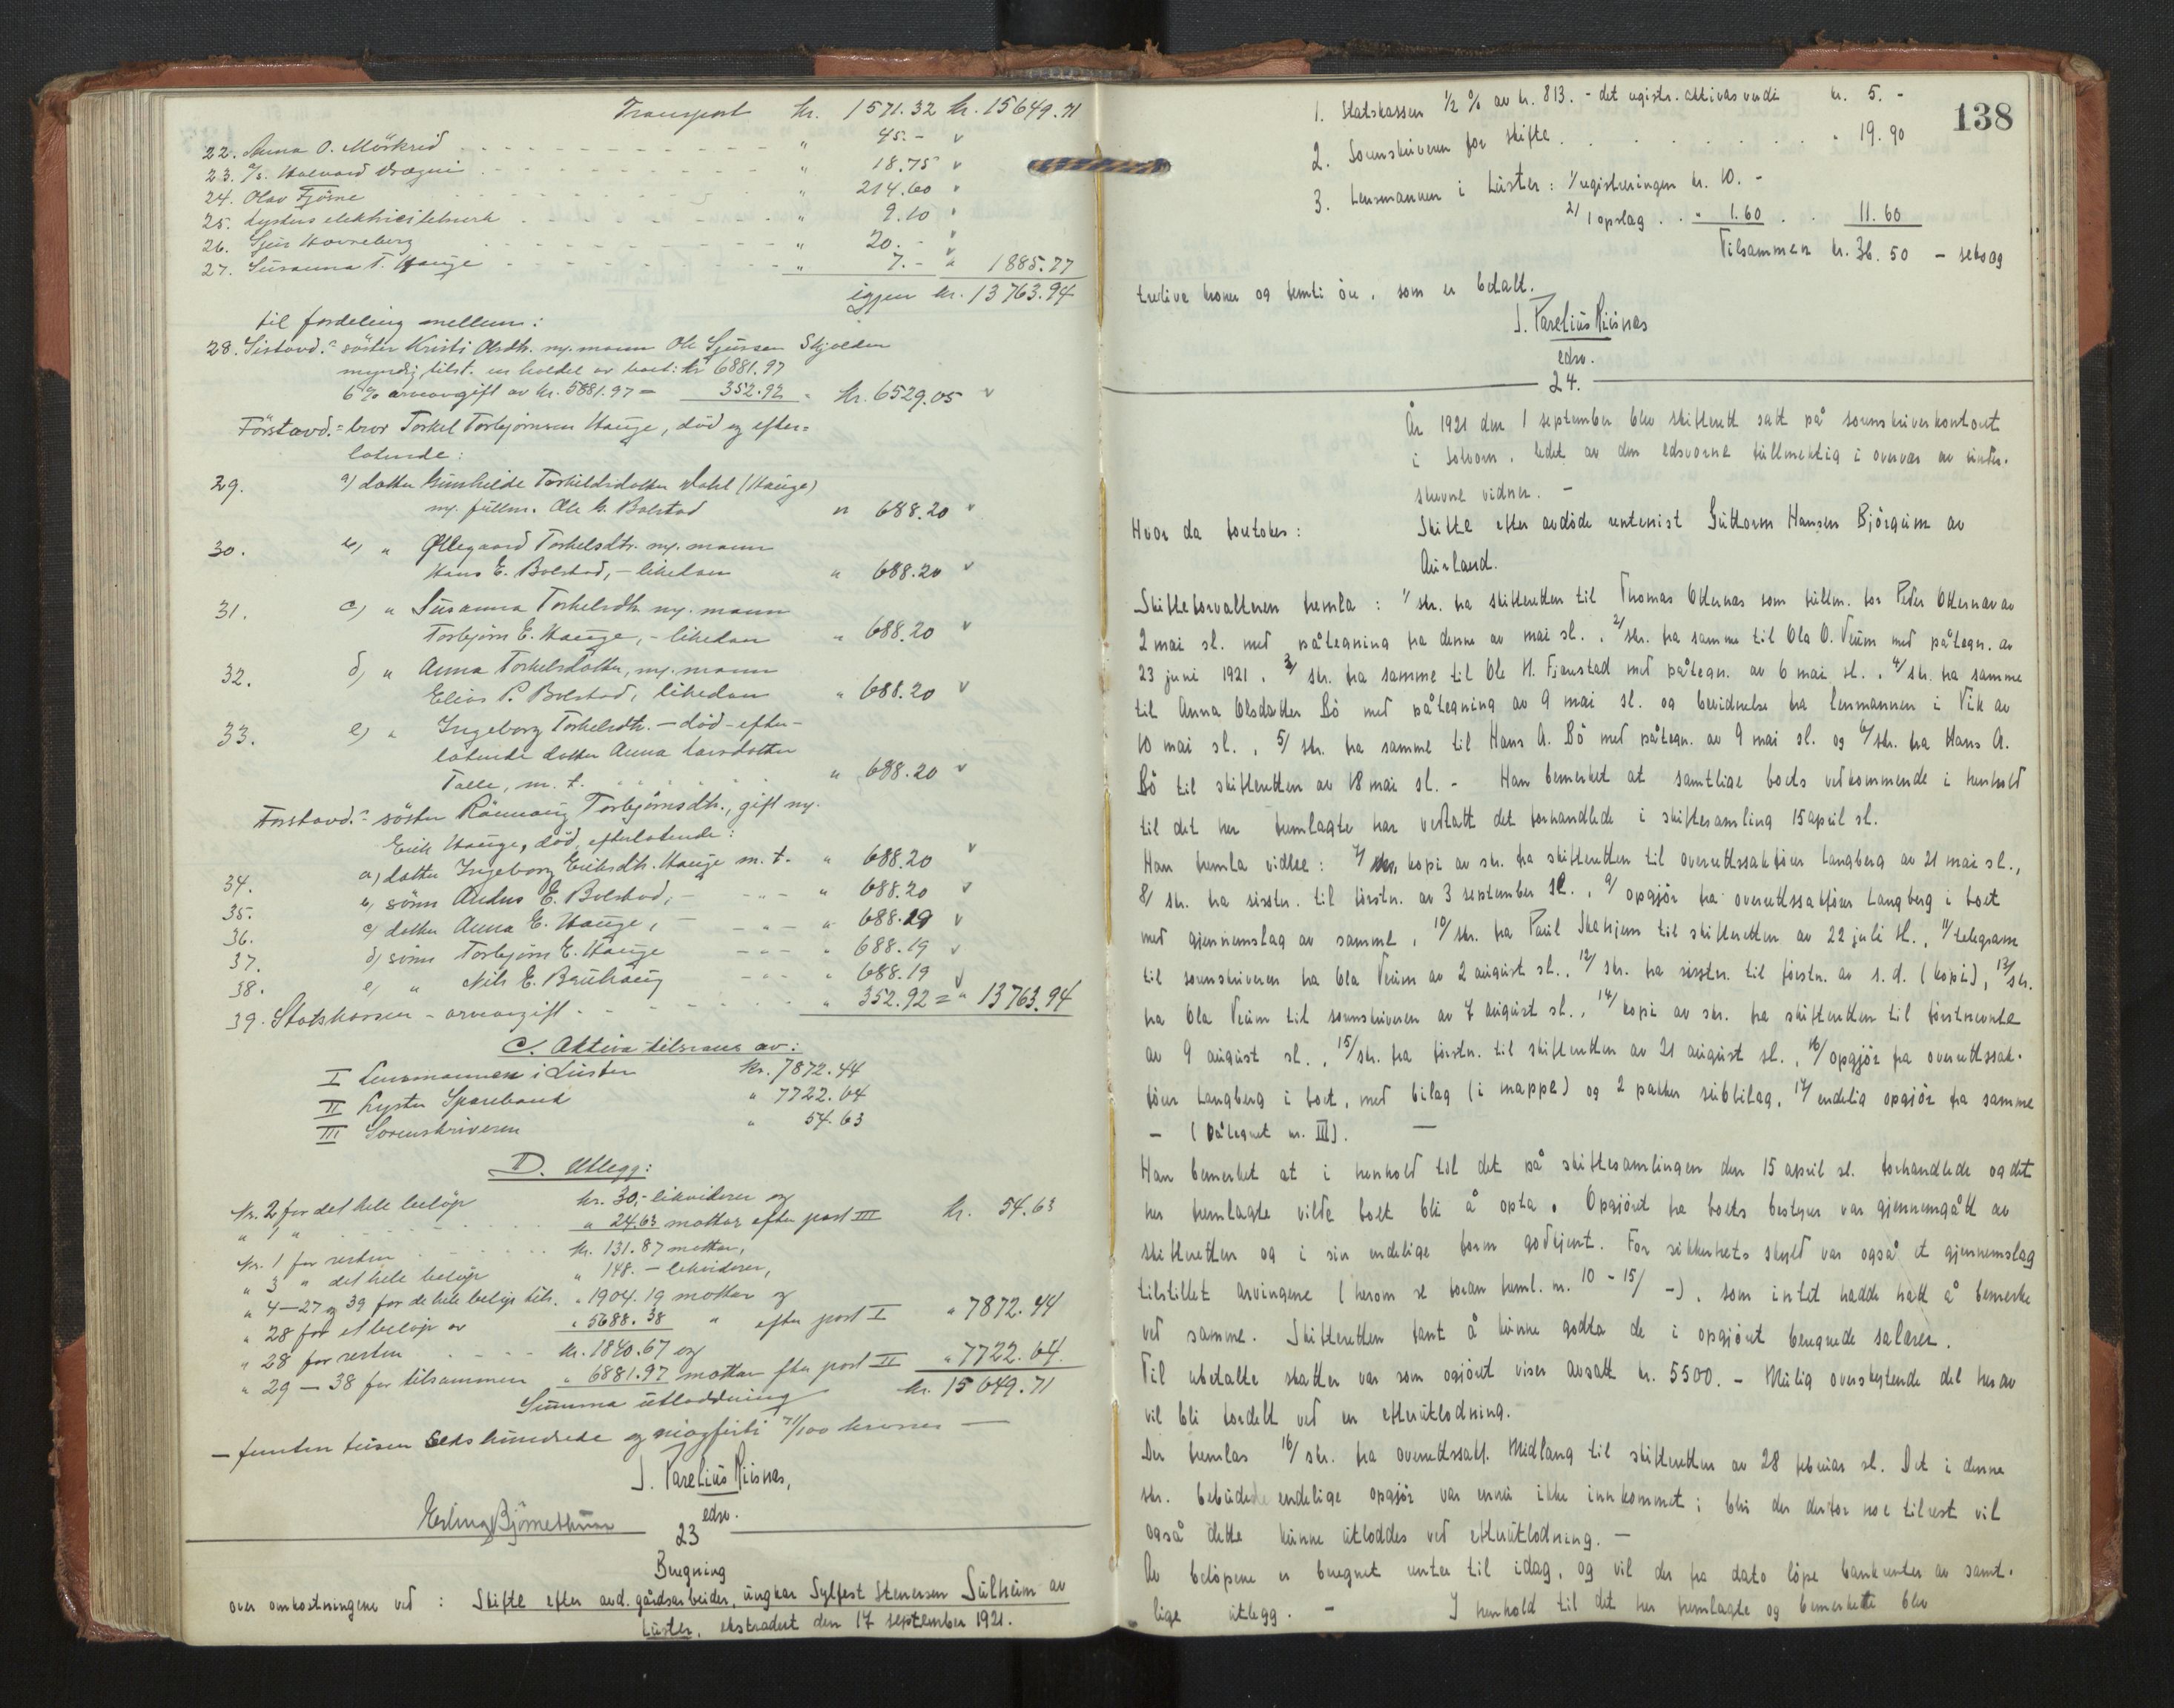 Transport kr. 1571.32 kr. 15649.71
22. Anna O. Mörkrid " 45.- v
23. A/s. Halvard Drægni " 18.75 v
24. Olav Fjörne " 214.60 v
25. Lysters elektricitetsverk " 9.10 v
26. Sjur Kvarneberg " 20.- v
27. Susanna T. Hauge " 7.- v " 1885.77
igjen kr. 13763.94
til fordeling mellem:
28. Sistavd.s söster Kristi Olsdtr. my. mann Ole Sjursen Skjolden
myndig, tilst. en halvdel av boet: kr 6881.97
6 % arveavgift av kr. 5881.97 = 352.92 = kr. 6529.05 v
Förstavd.s bror Torkel Torbjörnsen Hauge, död og efter=
latende:
29. a) datter Gunhilde Torkildsdatter Dahl (Hauge)
my. fullm. Ole G. Bolstad " 688.20 v
30. b) " Øllegaard Torkelsdtr. my. mann
Hans E. Bolstad, - likedan " 688.20 v
31. c) " Susanna Torkelsdtr. my. mann
Torbjörn E. Hauge, - likedan " 688.20 v
32. d) " Anna Torkelsdatter, my. mann
Elias P. Bolstad, likedan " 688.20 v
33. e) " Ingeborg Torkelsdtr. - död - efter-
latende datter Anna Larsdatter
Talle, m. t. " 688.20 v
Förstavd.s söster Rannaug Torbjörnsdtr., gift my.
Erik Hauge, död, efterlatende:
34. a) datter Ingeborg Eriksdtr. Hauge m. t. " 688.20 v
35. b) sönn Anders E. Bolstad, - - " - " 688.20 v
36. c) datter Anna E. Hauge, - - " - " 688.19 v
37. d) sönn Torbjörn E. Hauge - " - " 688.19 v
38. e) " Nils E. Bruhaug - " - " 688.19 v
39. Statskassen - arveavgift " 352.92 = " 13763.94
C. Aktiva tilsvares av:
I Lensmannen i Luster kr. 7872.44
II Lyster Sparebank " 7722.64
III Sorenskriveren " 54.63
D. Utlegg:
Nr. 2 for det hele belöp kr. 30,- likviderer og
" 1 " " 24.63 mottar efter post III kr. 54.63
Nr. 1 for resten kr. 131.87 mottar,
" 3 " det hele belöp " 148.- likviderer,
" 4-27 og 39 for de hele belöp tils. " 1904.19 mottar og
" 28 for et belöp av " 5688.38 " efter post I " 7872.44
" 28 for resten kr. 1840.67 og
" 29 - 38 for tilsammen " 6881.97 mottar efter post II " 7722.64
Summa utloddning kr. 15649.71
- femten tusen sekshundrede og niogførti 71/100 kroner -
J. Parelius Riisnæs,
edsv.
Erling Björnethun
23
Beregning
over omkostningene ved : Skifte efter avd. gårdsarbeider, ungkar Sylfest Stenersen Sulheim av
Luster, ekstradert den 17 september 1921.
138
1. Statskassen ½ % av kr. 813.- det registr. aktivas verdi kr. 5. -
2. Sorenskriveren for skifte " 19.90
3. Lensmannen i Luster: 1/ registreringen kr. 10. -
2/ 1 opslag " 1.60 " 11.60
Tilsammen kr. 36.50 - seksog
tredive kroner og femti öre, som er betalt.
J. Parelius Riisnæs
edsv.
24.
År 1921 den 1 september blev skifterett satt på sorenskriverkontoret
i Solvorn, ledet av den edsvorne fullmektig i overvær av under-
skrevne vidner. -
Hvor da foretokes: Skifte efter avdöde rentenist Guttorm Hansen Björgum av
Aurland.
Skifteforvalteren fremla: 1/ skr. fra skifteretten til Thomas Otternæs som fullm. for Peder Otternæs av
2 mai sl. med påtegning fra denne av mai sl., 2/ skr. fra samme til Ola O. Veum med påtegn. av
23 juni 1921, 3/ skr. fra samme til Ole H. Fjærestad med påtegn. av 6 mai sl., 4/ skr. fra samme
til Anna Olsdatter Bö med påtegning av 9 mai sl. og bevidnelse fra lensmannen i Vik av
10 mai sl., 5/ skr. fra samme til Hans A. Bö med påtegn. av 9 mai sl. og 6/ skr. fra Hans A.
Bö til skifteretten av 18 mai sl. - Han bemerket at samtlige boets vedkommende i henhold
til det her fremlagte har vedtatt det forhandlede i skiftesamling 15 april sl.
Han fremla videre: 7/ kopi av skr. fra skifteretten til overrettssakförer Langberg av 21 mai sl.,
8/ skr. fra sisstn. til förstn. av 3 september sl., 9/ opgjör fra overrettssakförer Langberg i boet
med gjennemslag av samme, 10/ skr. fra Paul Skahjem til skifteretten av 22 juli sl., 11/ telegram
til sorenskriveren fra Ola Veum av 2 august sl., 12/ skr. fra sisstn. til förstn. av s. d. (kopi), 13/ skr.
fra Ola Veum til sorenskriveren av 7 august sl., 14/ kopi av skr. fra skifteretten til förstnevnte
av 9 august sl., 15/ skr. fra förstn. til skifteretten av 21 august sl., 16/ opgjör fra overrettssak-
förer Langberg i boet, med bilag (i mappe) og 2 pakker subbilag, 17/ endelig opgjör fra samme
- (påtegnet nr. III). -
Han bemerket at i henhold til det på skiftesamlingen den 15 april sl. forhandlede og det
her fremlagte vilde boet bli å opta. Opgjöret fra boets bestyrer var gjennemgått av
skifteretten og i sin endelige form godkjent. For sikkerhets skyld var også et gjennemslag
tilstillet arvingene (herom se foran freml. nr. 10 - 15/ -), som intet hadde hatt å bemerke
ved samme. Skifteretten fant å kunne godta de i opgjöret beregnede salærer.
Til ubetalte skatter var som opgjöret viser avsatt kr. 5500. - Mulig overskytende del herav
vil bli fordelt ved en efterutlodning.
Der fremlas 16/ skr. fra overrettssakf. Midlang til skifteretten av 28 februar sl. Det i denne
skr. bebudede endelige opgjör var ennu ikke innkommet; blir der derfor noe tilrest vil
også dette kunne utloddes ved efterutlodning. -
Av belöpene er beregnet renter til idag, og vil der fra dato löpe bankrenter av samt-
lige utlegg. - I henhold til det her fremlagte og bemerkede blev